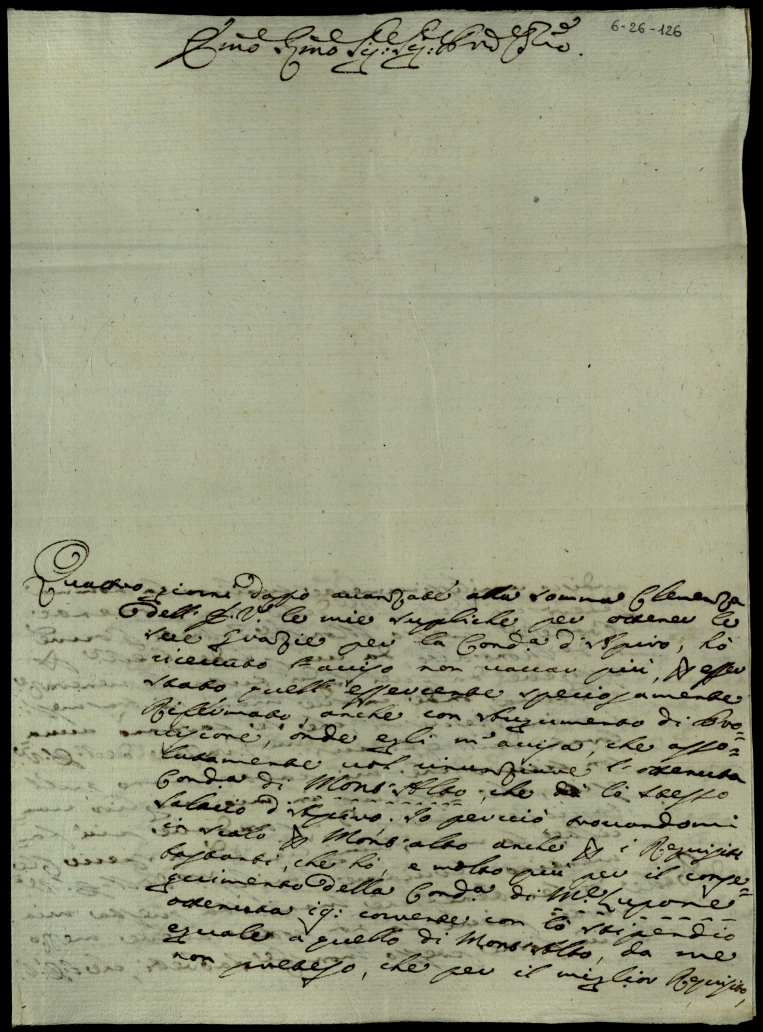 6-26-126
Emo Rmo Sig: Sig: Prõe
Quattro giorni dopo avanzate alla somma Clemenza
dell' E. V. le mie suppliche per ottener le
sue Grazie per la Conda. d'Apiro, hò
ricevuto l'aviso non vaccar più, esser
stato quell' essercente speciosamente
Riffermato, anche con
onde egli m'avisa, che asso=
lutamente vol rinunziare l'ottenuta
Conda di Mont' Alto, che hà lo stesso
Salario d'Apiro. Io perciò trovandomi
in stato Mont' alto anche i Requisiti
bastanti, che hò, e molto più per il conse=
guimento della Conda. di Mte. Lupone
ottenuta corrente con lo stipendio
eguale a quello di Mont' Alto, da me
non preteso, che per il miglior Requisito,